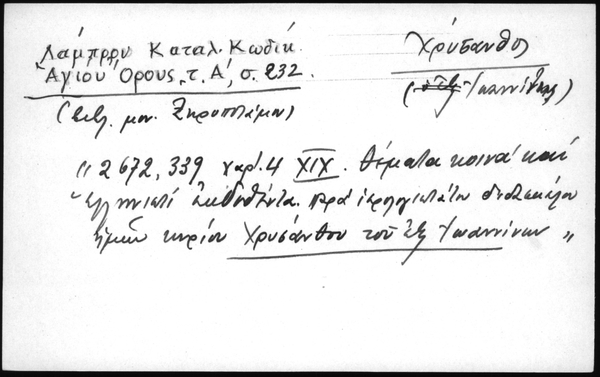 Λάμπρου Καταλ. Κωδίκ.
Ἁγίου Ὄρους, τ. Α', σ. 232.
(βιβ. μον. Ξηροποτάμου)
Χρύσανθος
(ἐξ Ἰωαννίνων)
" 2672, 339 χαρ. 4 XIX. Θέματα κοινὰ καὶ
ἑλληνιστὶ ἐκδοθέντα παρὰ διδασκάλου
ἡμῶν κυρίου Χρυσάνθου τοῦ ἐξ Ἰωαννίνων "